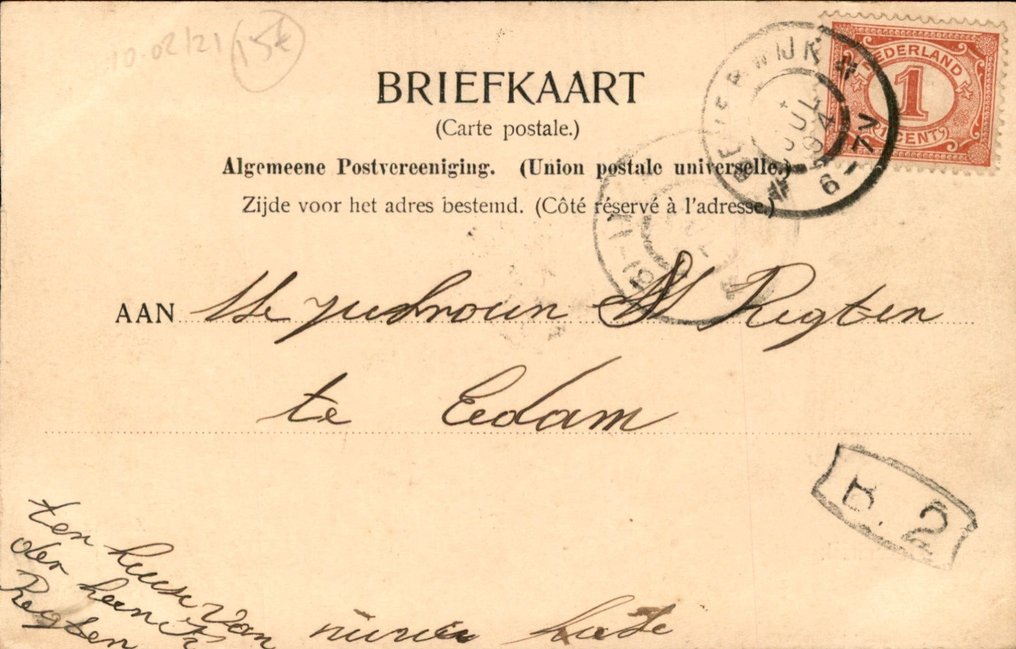 10.02/21 15€
BRIEFKAART
(Carte postale.)
Algemeene Postvereeniging. (Union postale universelle.)
Zijde voor het adres bestemd. (Côté réservé à l'adresse.)
NEDERLAND
1
CENT
BEVERWIJK
JUL
6-7V
AAN Regten
te Edam
B. 2
ten huise van
der heer
Regten